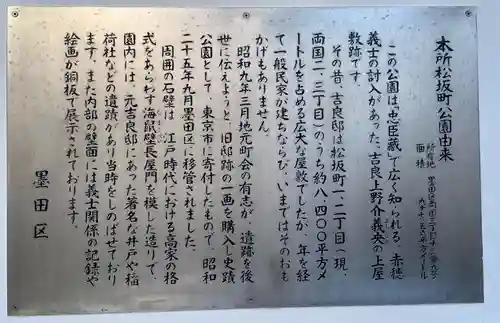 本所松坂町公園由来
所在地 墨田区両国三丁目十三番九号
面積
この公園は「忠臣蔵」で広く知られる、赤穂
義士の討入があった、吉良上野介義央の上屋
敷跡です。
その昔、吉良邸は松坂町一、二丁目(現、
両国二、三丁目)のうち約八、四〇〇平方メ
ートルを占める広大な屋敷でしたが、年を経
て一般民家が建ちならび、いまではそのおも
かげもありません。
昭和九年三月地元町会の有志が、遺跡を後
世に伝えようと、旧邸跡の一画を購入し史蹟
公園として、東京市に寄付したもので、昭和
二十五年九月墨田区に移管されました。
周囲の石壁は、江戸時代における高家の格
式をあらわす海鼠壁長屋門を模した造りで、
園内には、元吉良邸にあった著名な井戸や稲
荷社などの遺蹟があり当時をしのばせており
ます。また内部の壁面には義士関係の記録や
絵画が銅板で展示されております。
墨田区